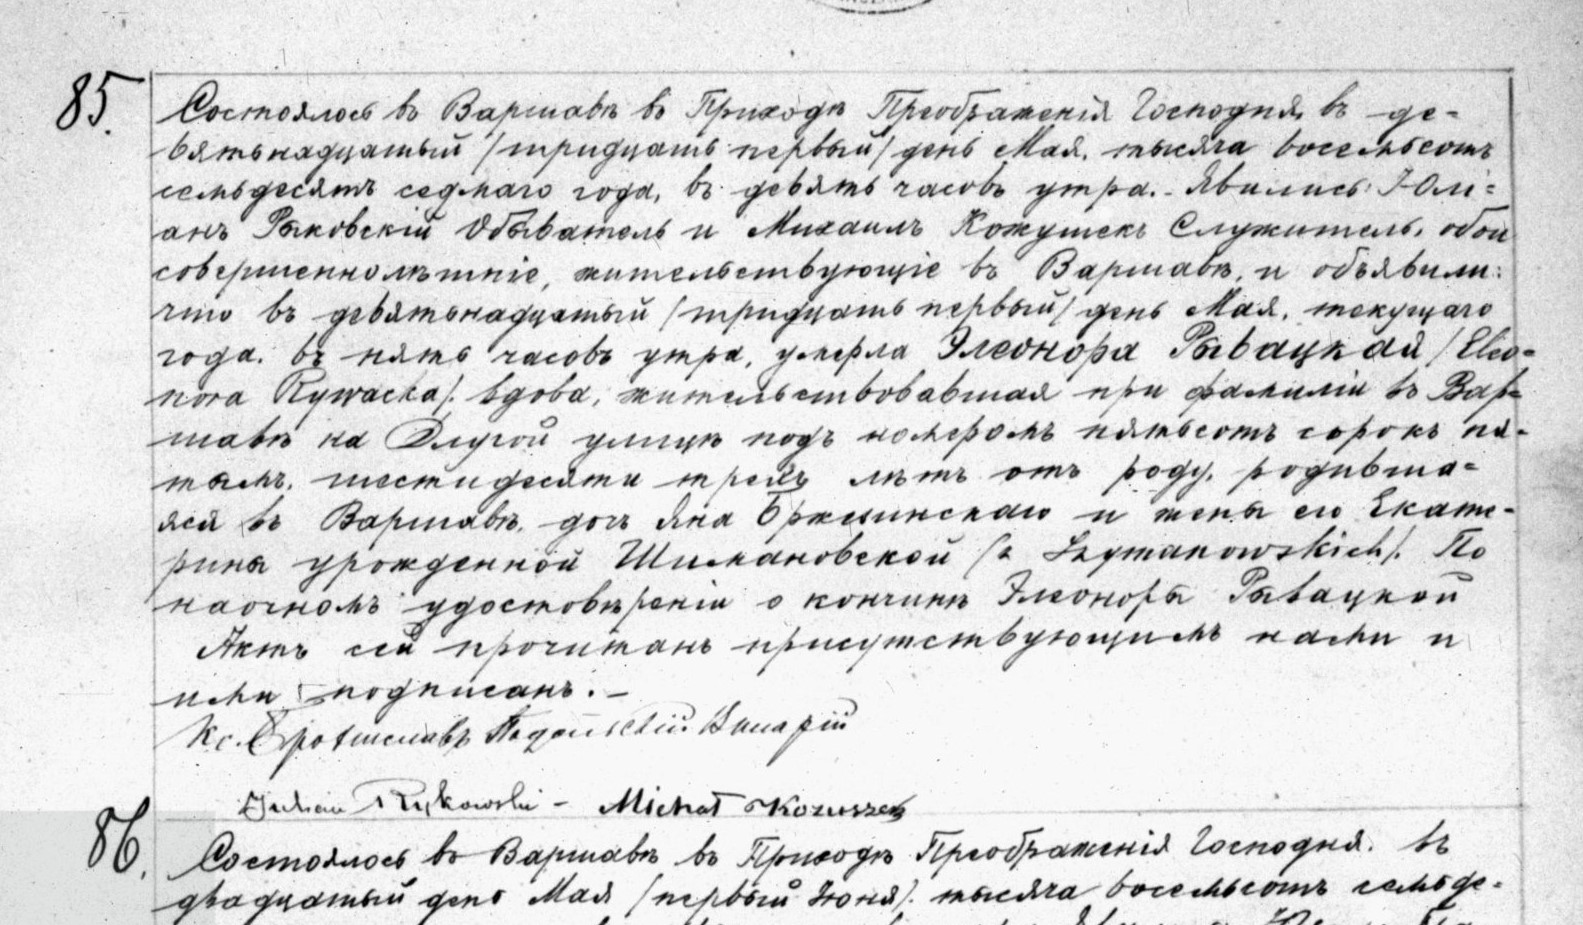 85.
Состоялось въ Варшавѣ въ Приходѣ Преображенія Господня, въ де-
вятьнадцатый /тридцать первый/ день Мая, тысяча восемьсотъ
семьдесятъ седмаго года, въ девять часовъ утра. - Явились: Юлі-
анъ Рыковскій Обыватель и Михаилъ Кожушекъ Служитель, обои
совершеннолѣтніе, жительствующіе въ Варшавѣ, и объявили:
что въ девятьнадцатый /тридцать первый/ день Мая, текущаго
года, въ пять часовъ утра, умерла Элеонора Рывацкая /Eleo-
nora Rywacka/. вдова, жительствовавшая при фамиліи въ Вар-
шавѣ на Длугой улицѣ подъ номеромъ пятьсотъ сорокъ пя-
тымъ, шестидесяти трехъ лѣтъ отъ роду, родивша-
яся въ Варшавѣ, дочь Яна и жены его Екате-
рины урожденной Шимановской /z Szymanowskich/. По
наочномъ удостовѣреніи о кончинѣ Элеоноры Рывацкой
Актъ сей прочитанъ присутствующимъ нами и
ими подписанъ. -
Кс. Викарій
Julian Rykowski - Michał Kozuszek
86.
Состоялось въ Варшавѣ въ Приходѣ Преображенія Господня. въ
двадцатый день Мая /первый Іюня/. тысяча восемьсотъ семьде-